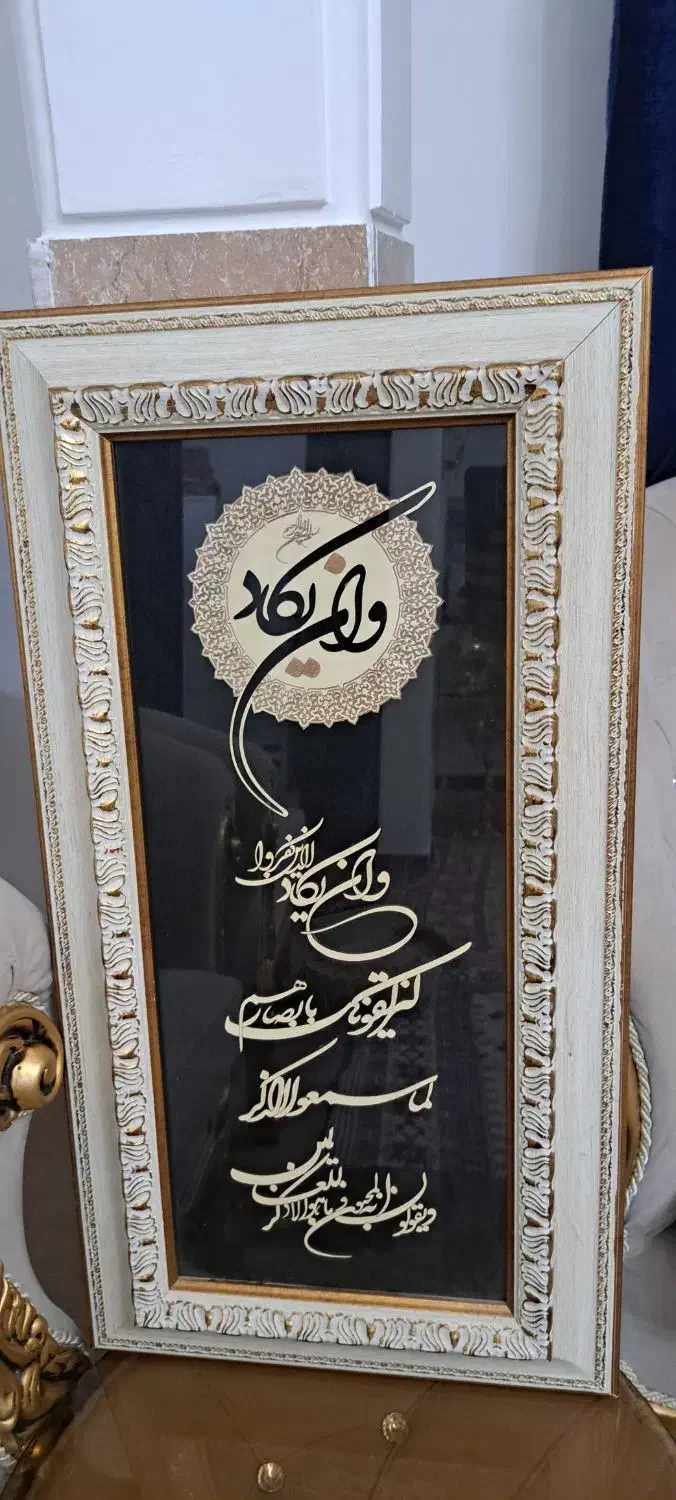 بسم الله الرحمن الرحیم
وان یکاد
وان یکاد الذین کفروا
لیزلقونک بابصارهم
لما سمعوا الذکر
ویقولون انه لمجنون وما هو الا ذکر للعالمین